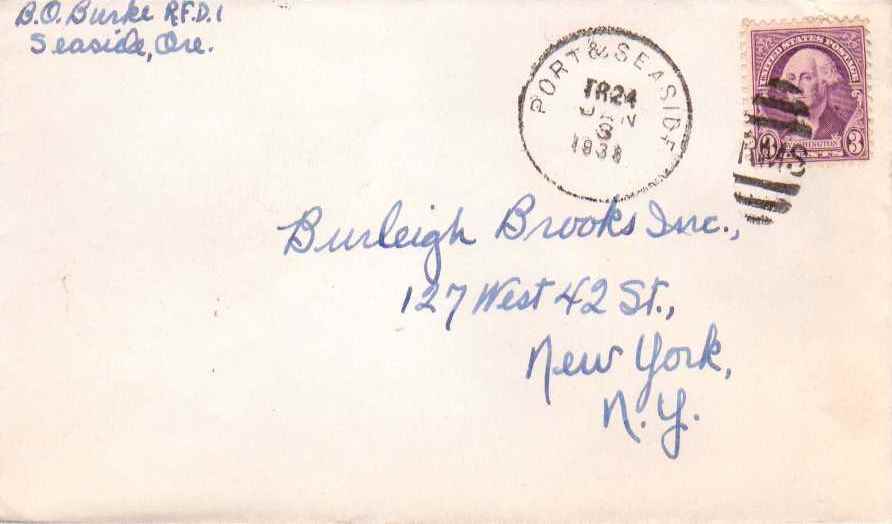 B.O. Burke R.F.D.1
Seaside, Ore.
PORT & SEASIDE
TR24
JAN
1938
UNITED STATES POSTAGE
3 WASHINGTON 3
CENTS
R.M.S
Burleigh Brooks Inc.,
127 West 42 St.,
New York,
N.Y.